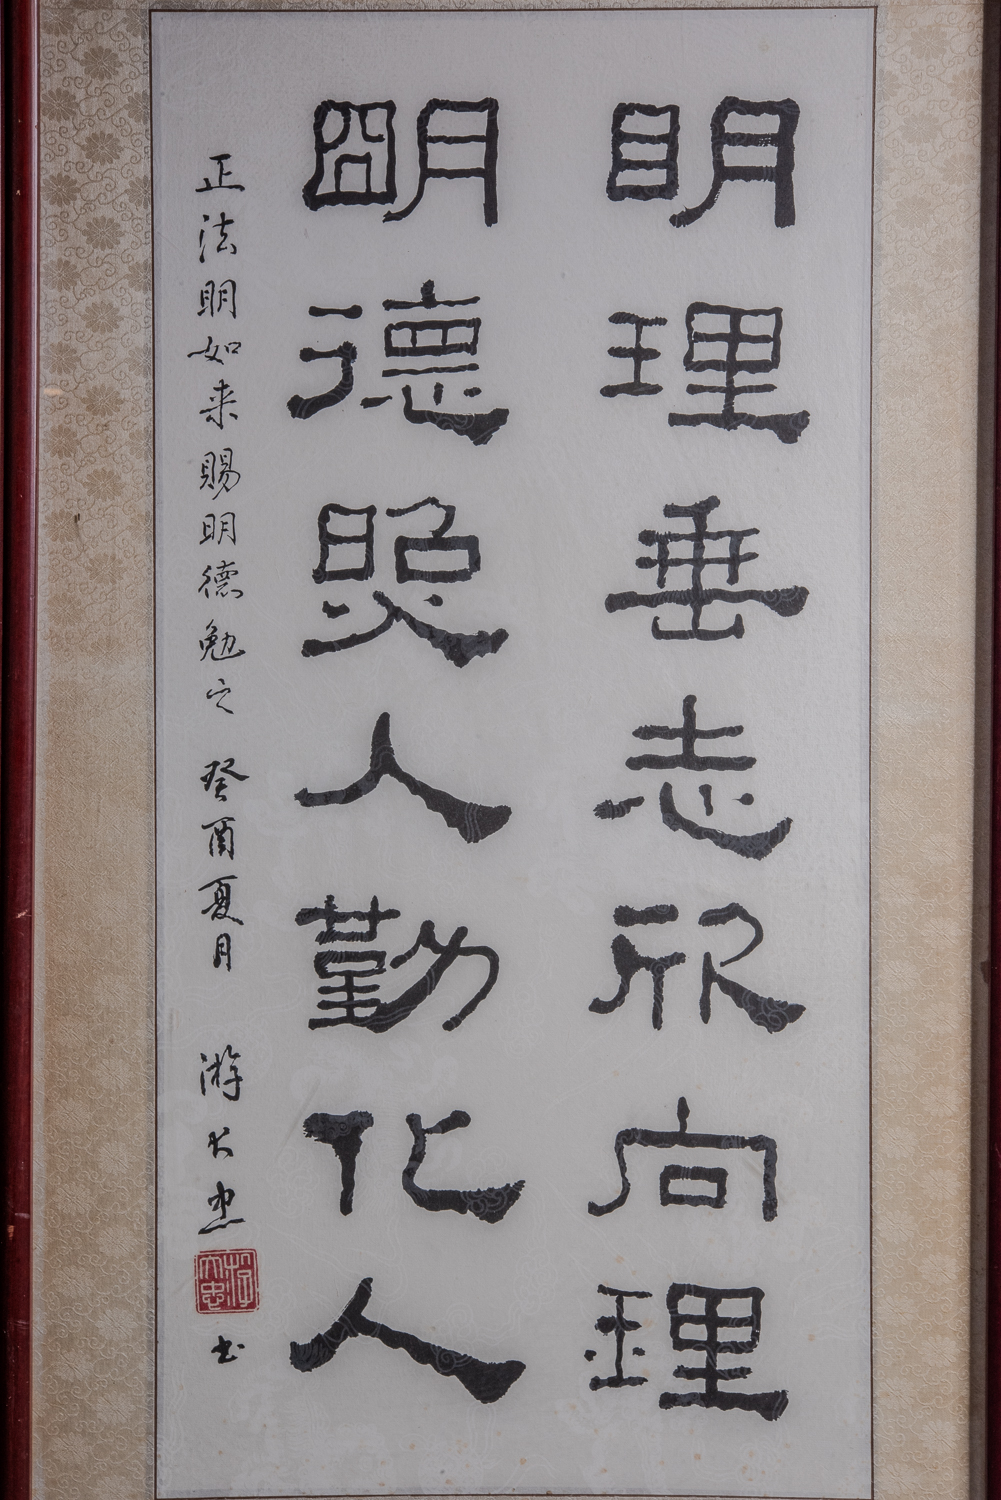 明理垂志欣向理
明德照人勤化人
正法明如来賜明德勉之 癸酉夏月 游大忠書
游大忠